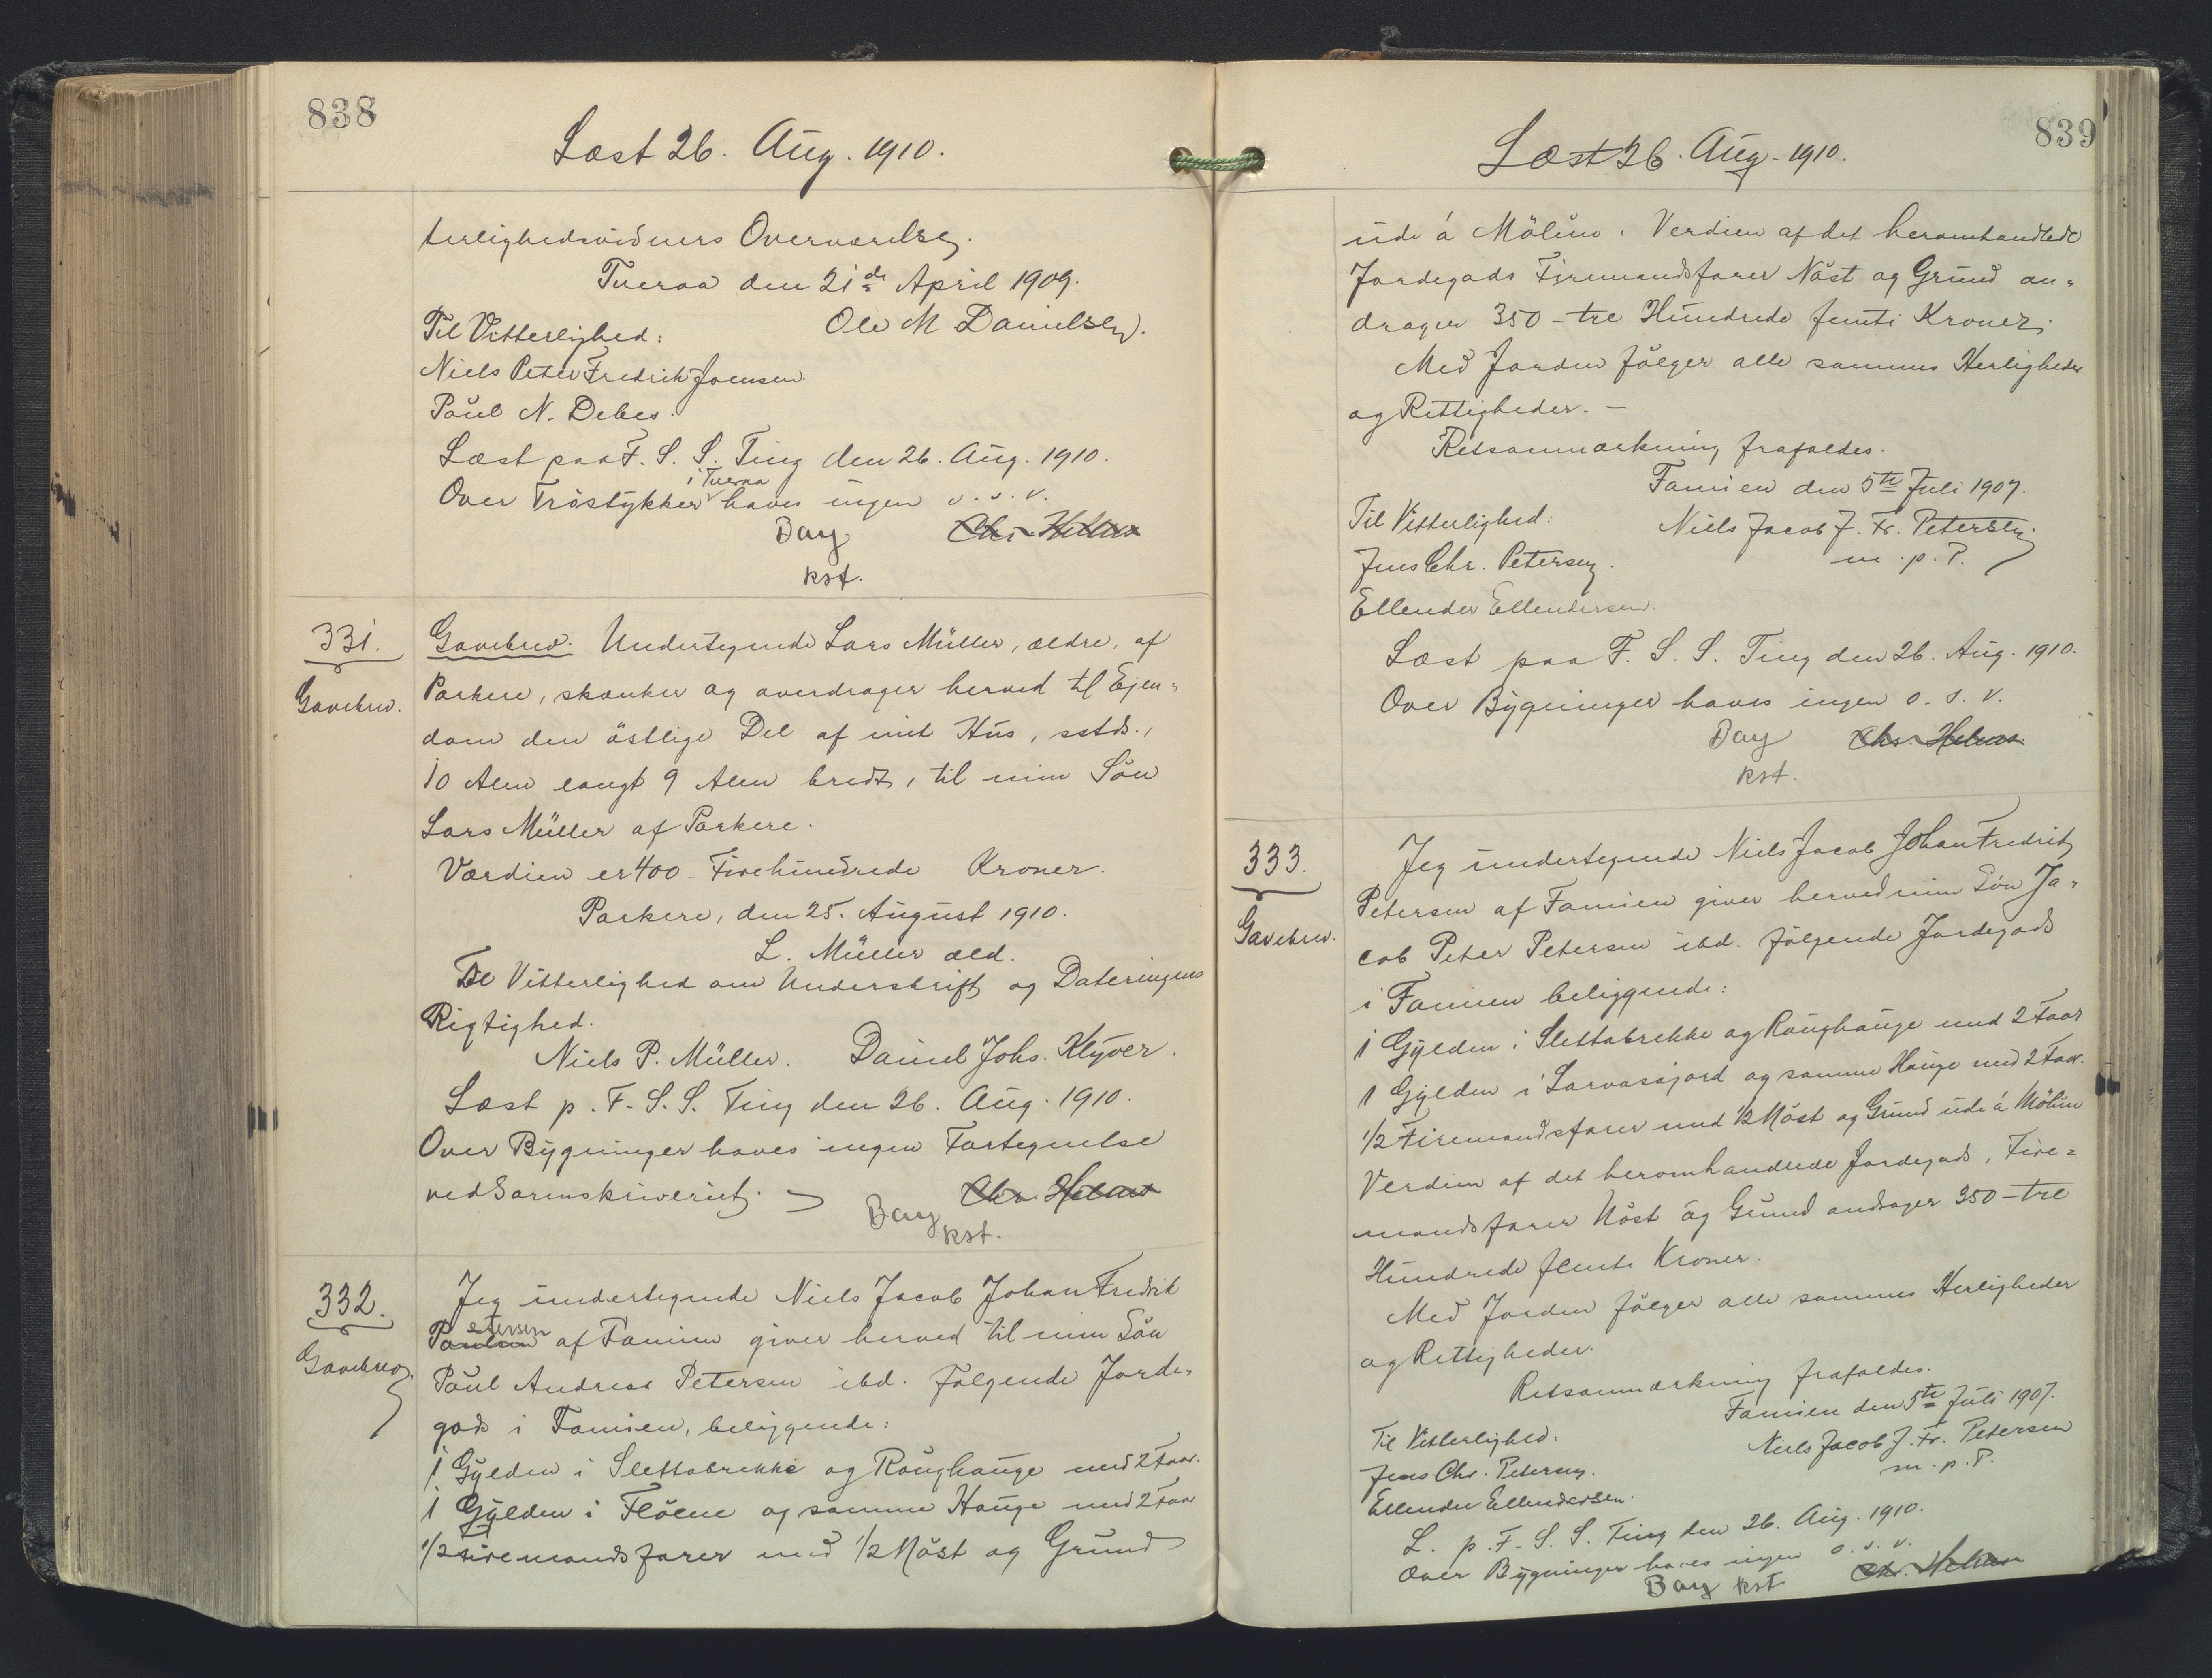 838
Læst 26. Aug. 1910.
terlighedsvidners Overværelse.
Tveraa den 21de April 1909.
Til Vitterlighed: Ole M Danielsen.
Niels Peter Fredrik Joensen.
Poul N. Debes.
Læst paa F. S. S. Ting den 26. Aug. 1910.
Over Tröstykker i Tveraa haves ingen o. s. v.
Bay Chr. Holm
kst.
331. Gavebrev. Undertegnede Lars Müller, ældre, af
Gavebrev. Porkere, skænker og overdrager herved til Ejen-
dom den östlige Del af mit Hus, sstds.,
10 Alen langt 9 Alen bredt, til min Sön
Lars Müller af Porkere.
Værdien er 400 - Firehundrede Kroner.
Porkere, den 25. August 1910.
L. Müller æld.
Til Vitterlighed om Underskrift og Dateringens
Rigtighed.
Niels P. Müller. Daniel Johs. Klyver.
Læst p. F. S. S. Ting den 26. Aug. 1910.
Over Bygninger haves ingen Fortegnelse
ved Sorenskriveriet.
Bay
kst.
332. Jeg undertegnede Niels Jacob Johan Fredrik
Petersen af Famien giver herved til min Sön
Gavebrev. Poul Andreas Petersen ibd. fölgende Jorde-
gods i Famien, beliggende:
1 Gylden i Slettabrekke og Roughauge med 2 Faar.
1 Gylden i Flöene og samme Hauge med 2 Faar
1/2 Firemandsfarer med 1/2 Nöst og Grund
839
Læst 26. Aug. 1910.
ude á Mölini. Verdien af det heromhandlede
Jordegods Firemandsfarer Nöst og Grund an-
drager 350 - tre Hundrede femti Kroner.
Med Jorden fölger alle sammes Herligheder
og Rettigheder. -
Retsanmærkning frafaldes.
Famien den 5te Juli 1907.
Til Vitterlighed: Niels Jacob J. Fr. Petersen.
Jens Chr. Petersen. m. p. P.
Ellender Ellendersen.
Læst paa F. S. S. Ting den 26. Aug. 1910.
Over Bygninger haves ingen o. s. v.
Bay
kst.
333. Jeg undertegnede Niels Jacob Johan Fredrik
Petersen af Famien giver herved min Sön Ja-
Gavebrev. cob Peter Petersen ibd. fölgende Jordegods
i Famien beliggende:
1 Gylden i Slettabrekke og Roughauge med 2 Faar
1 Gylden i Larvasajord og samme Hauge med 2 Faar.
1/2 Firemandsfarer med 1/2 Nöst og Grund ude á Mölini
Verdien af det heromhandlede Jordegods, Fire-
mandsfarer Nöst og Grund andrager 350 - tre
Hundrede femti Kroner.
Med Jorden fölger alle sammes Herligheder
og Rettigheder.
Retsanmærkning frafaldes.
Famien den 5te Juli 1907.
Til Vitterlighed: Niels Jacob J. Fr. Petersen
Jens Chr. Petersen. m. p. P.
Ellender Ellendersen.
L. p. F. S. S. Ting den 26. Aug. 1910.
Over Bygninger haves ingen o. s. v.
Bay kst